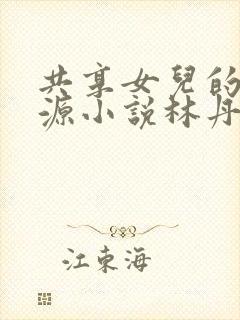 共享女兒的
源小說林丹
江東海